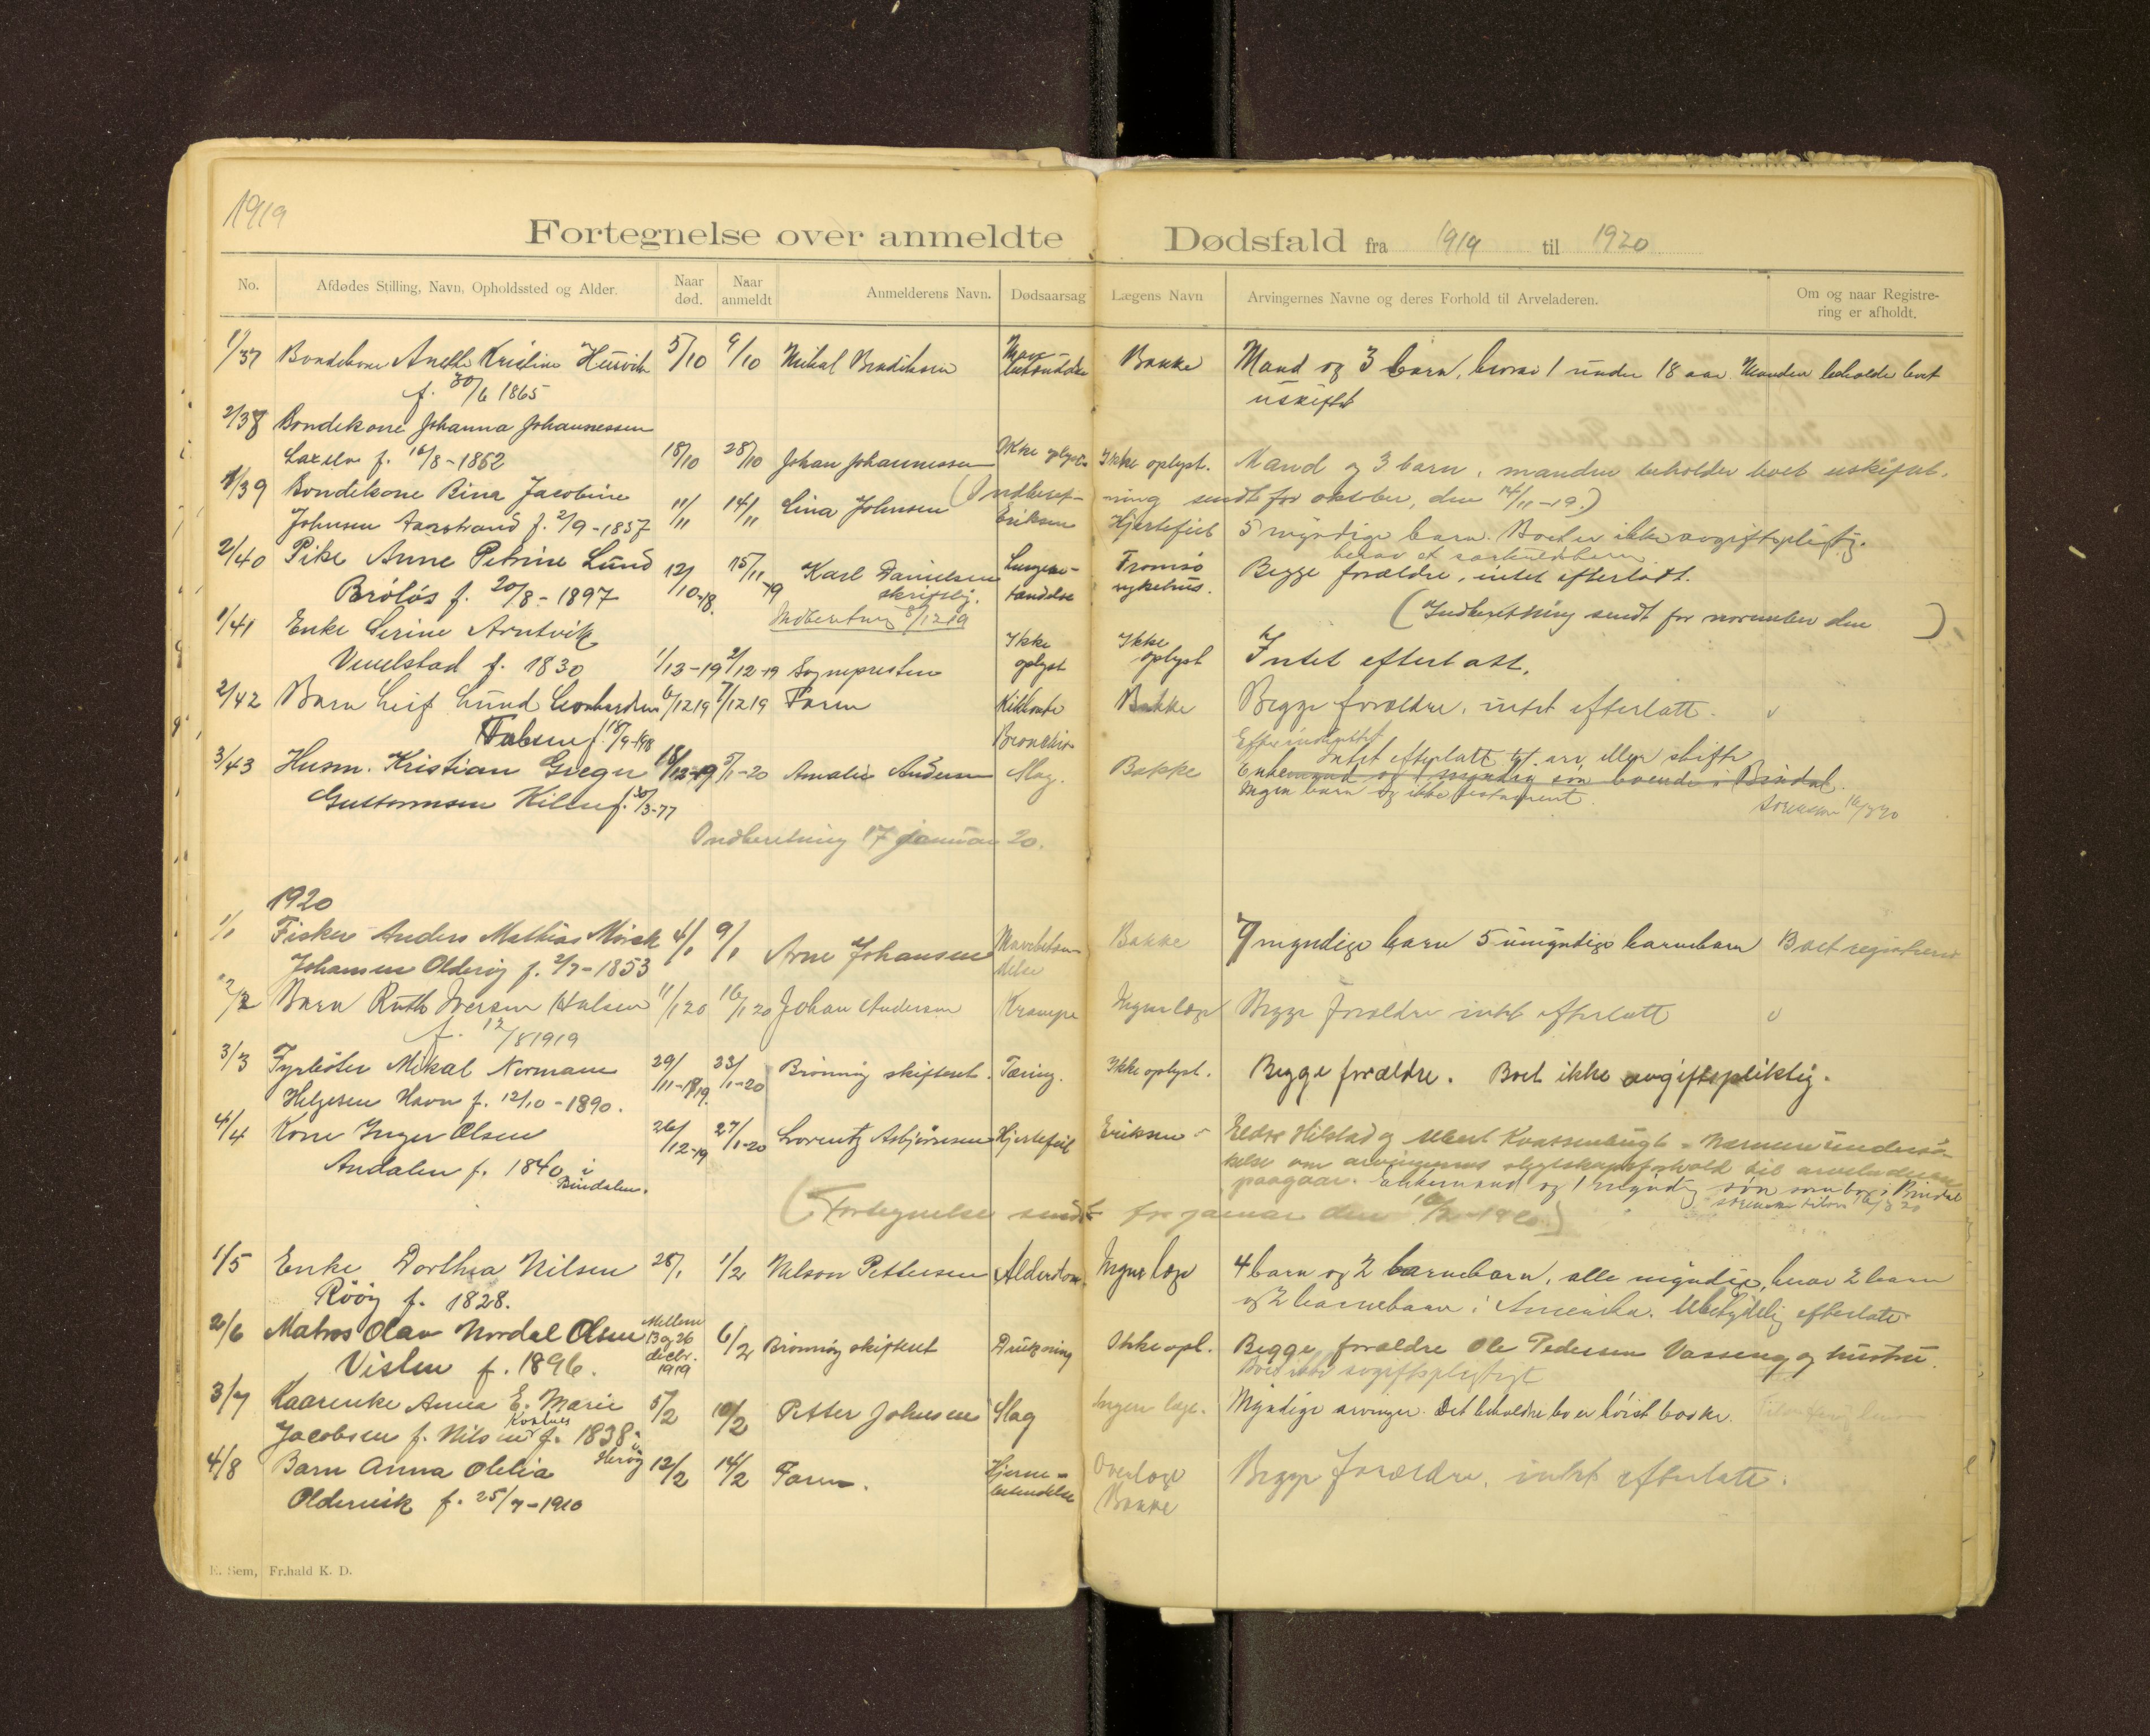 1919
Fortegnelse over anmeldte Dødsfald fra 1919 til 1920
No. Afdødes Stilling, Navn, Opholdssted og Alder. Naar død. Naar anmeldt Anmelderens Navn. Dødsaarsag Lægens Navn Arvingernes Navne og deres Forhold til Arveladeren. Om og naar Registrering er afholdt.
1/37 Bondekone Anette Kristine 5/10 9/10 Mikal Bakke Mand og 3 barn, hvorav 1 under 18 aar. Manden beholder boet
f. 30/6 1865 uskiftet
2/38 Bondekone Johanna Johannessen
f. 16/8-1862 18/10 28/10 Johan Johannessen Ikke oplyst Ikke oplyst. Mand og 3 barn, manden beholder boet uskiftet.
(Indberetning sendt for oktober, den 14/11-19.)
1/39 Bondekone Bina Jacobine
Johnsen Aarstrand f. 2/9-1857 11/11 14/11 Lina Johnsen Eriksen Hjertefeil 5 myndige barn. Boet er ikke avgiftspligtig.
herav et særkuldsbarn
2/40 Pike Anne Petrine Lund
Brøløs f. 20/8-1897 12/10-18. 15/11-19 Karl Danielsen skriftlig. Lungetændelse Tromsø sykehus. Begge forældre, intet efterladt.
Indberetning 8/12 19 (Indberetning sendt for november den )
1/41 Enke Serine Arntvik
f. 1830 1/12-19 2/12-19 Sognepresten Ikke oplyst Ikke oplyst Intet efterlatt.
2/42 Barn Leif Lund Leonhardsen 6/12 19 7/12 19 Faren Kikhoste Bakke Begge forældre, intet efterlatt.
f. 18/9-198
3/43 Husm. Kristian Greger 18/12-19 5/1-20 Amalie Andersen Slag. Bakke Intet efterlatt til arv eller skifte
Enkemand og 1 myndig søn boende i Bindal.
Gustavnsen f. 30/3-77 Ingen barn og ikke testament. Sørensen 16/3 20
Indberetning 17 januar 20.
1920
1/1 Fisker Anders Mathias Mørck 4/1 9/1 Arne Johansen Mavebetændelse Bakke 7 myndige barn 5 umyndige barnebarn Boet registreres
Johansen Olderøy f. 2/7-1853
2/2 Barn Ruth Iversen 11/1 20 16/1 20 Johan Andersen Krampe Ingen læge Begge forældre intet efterlatt
f. 12/8 1919
3/3 Fyrbøter Mikal Normann 29/11-1919. 23/1-20 Brønnøy skifteret. Tæring. Ikke oplyst. Begge forældre. Boet ikke avgiftspliktig.
Helgesen Havn f. 12/10-1890.
4/4 Kone Inger Olsen 26/12-19 27/1-20 Lorentz Asbjørnsen Hjertefeil Eriksen Hilstad og Albert Nærmere undersøkelse
om arvingernes slegtskapsforhold til arveladeren
Andalen f. 1840 i Bindalen. paagaar. Enkemand og 1 myndig søn som bor i Bindal
16/3 20
(Fortegnelse sendt for januar den 10/2-1920)
1/5 Enke Dorthea Nilsen 28/1 1/2 Nelson Pettersen Alderdom Ingen læge 4 barn og 2 barnebarn, alle myndige, herav 2 barn
Røøy f. 1828. og 2 barnebarn i Amerika. Ubetydelig efterlatt
2/6 Matros Olav Nordal Olsen Mellem 13 og 26 decbr. 1919 6/2 Brønnøy skifteret Drukning Ikke opl. Begge forældre Ole Pedersen Vasseng og hustru.
f. 1896. Boet ikke avgiftspligtigt
3/7 Kaarenke Anna E. Marie 5/2 10/2 Petter Johnsen Slag Ingen læge. Myndige arvinger.
Jacobsen f. Nilsen f. 1838 i Herøy
4/8 Barn Anna Olelia 12/2 14/2 Faren. Hjernebetændelse Overlæge Bakke Begge forældre, intet efterlatt.
Oldervik f. 25/7-1910
E. Sem, Fr.hald K. D.